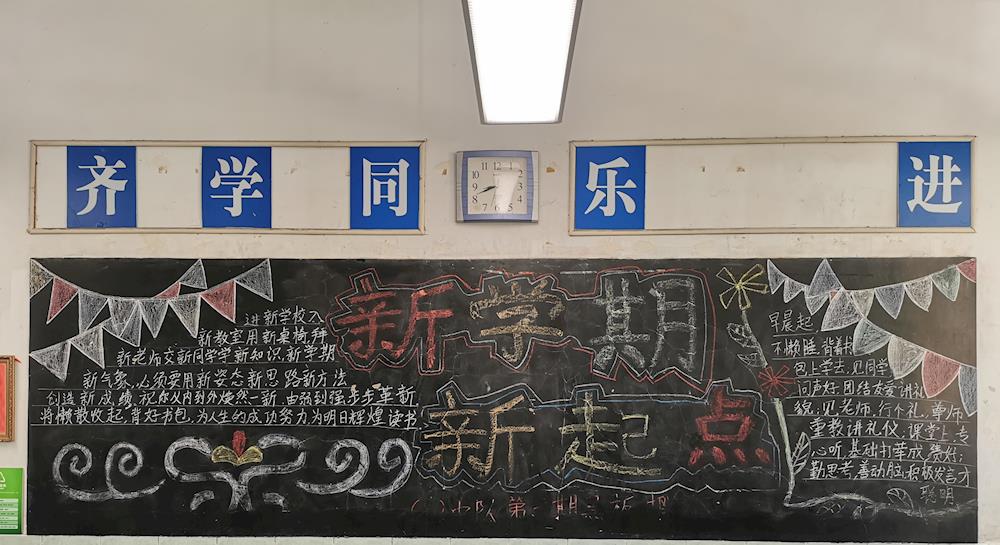 齐 学 同 乐 进
11 12 1
10 2
9 3
8 4
7 6 5
新学期
新起点
进新学校入
新教室用新桌椅拜
新老师交新同学学新知识,新学期
新气象,必须要用新姿态新思路新方法
创造新成绩,祝你从内到外焕然一新,由弱到强步步革新
将懒散收起,背好书包,为人生的成功努力为明日辉煌读书
早晨起
不懒睡,背着书
包上学去,见同学
问声好,团结友爱讲礼
貌,见老师,行个礼,尊师
重教讲礼仪,课堂上,专
心听,基础打牢成绩好;
勤思考,善动脑,积极发言才
聪明
中队第一期